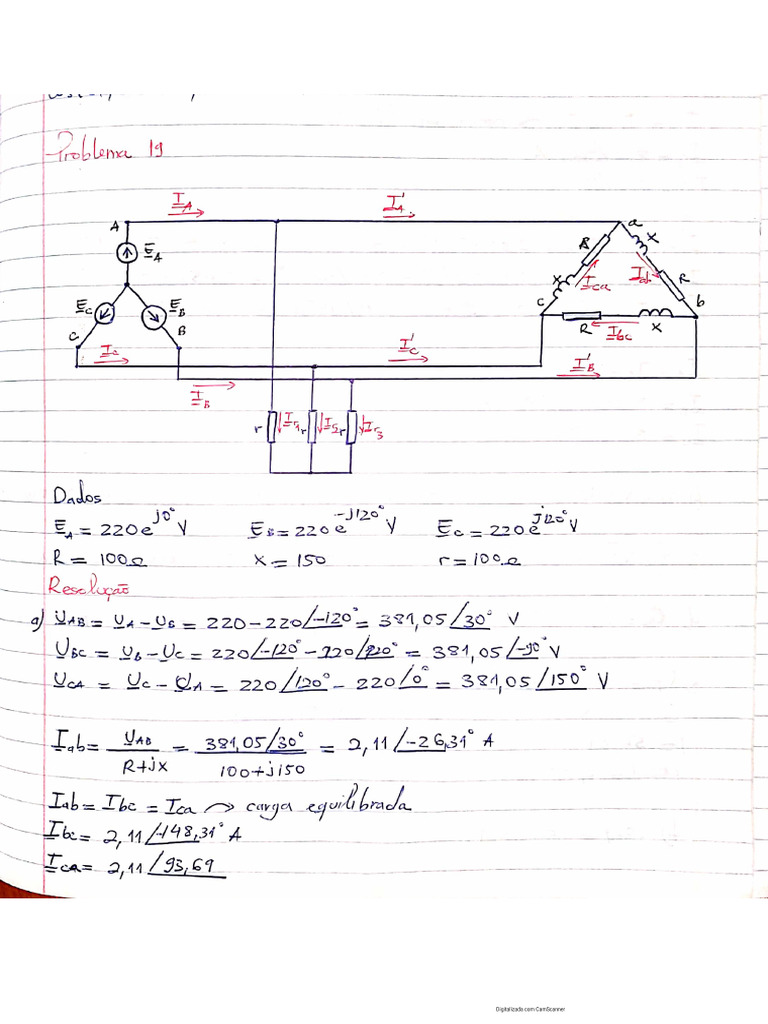 Problema 19
I_A I'_A
A a
E_A R X
E_C E_B X I_ca I_ab R
C B c b
I_c I'_c R I_bc X
I_B I'_B
r I_r1 r I_r2 r I_r3
Dados
E_A = 220e^j0° V E_B = 220e^-j120° V E_C = 220e^j120° V
R = 100Ω X = 150 r = 100Ω
Resolução
a) U_AB = U_A - U_B = 220 - 220/-120° = 381,05/30° V
U_BC = U_B - U_C = 220/-120° - 220/120° = 381,05/-90° V
U_CA = U_C - U_A = 220/120° - 220/0° = 381,05/150° V
I_ab = U_AB / R+jX = 381,05/30° / 100+j150 = 2,11/-26,31° A
I_ab = I_bc = I_ca → carga equilibrada
I_bc = 2,11/-148,31° A
I_ca = 2,11/93,69
Digitalizada com CamScanner